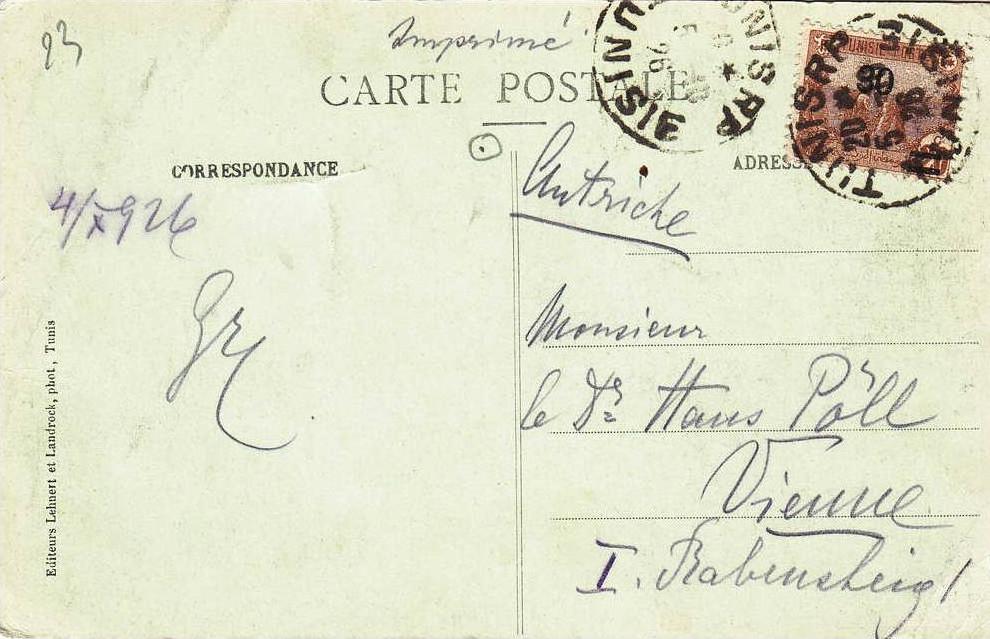 23
Imprimé
CARTE POSTALE
CORRESPONDANCE
ADRESSE
4/X 926
Autriche
Monsieur
le Dr Hans Pöll
Vienne
I. Rabensteig 1
Editeurs Lehnert et Landrock, phot., Tunis
TUNIS RP
TUNISIE
5
26
TUNISIE
90
TUNIS RP
20
5
26